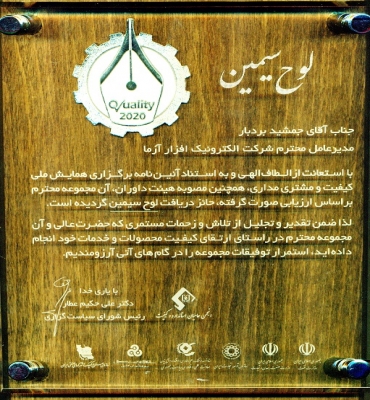 لوح سیمین
Quality
2020
جناب آقای جمشید بردبار
مدیرعامل محترم شرکت الکترونیک افزار آزما
با استعانت از الطاف الهی و به استناد آئین نامه برگزاری همایش ملی
کیفیت و مشتری مداری، همچنین مصوبه هیئت داوران، آن مجموعه محترم
براساس ارزیابی صورت گرفته، حائز دریافت لوح سیمین گردیده است.
لذا ضمن تقدیر و تجلیل از تلاش و زحمات مستمری که حضرت عالی و آن
مجموعه محترم در راستای ارتقای کیفیت محصولات و خدمات خود انجام
داده اید، استمرار توفیقات مجموعه را در گام های آتی آرزومندیم.
با یاری خدا
دکتر علی حکیم عطار
رئیس شورای سیاست گزاری